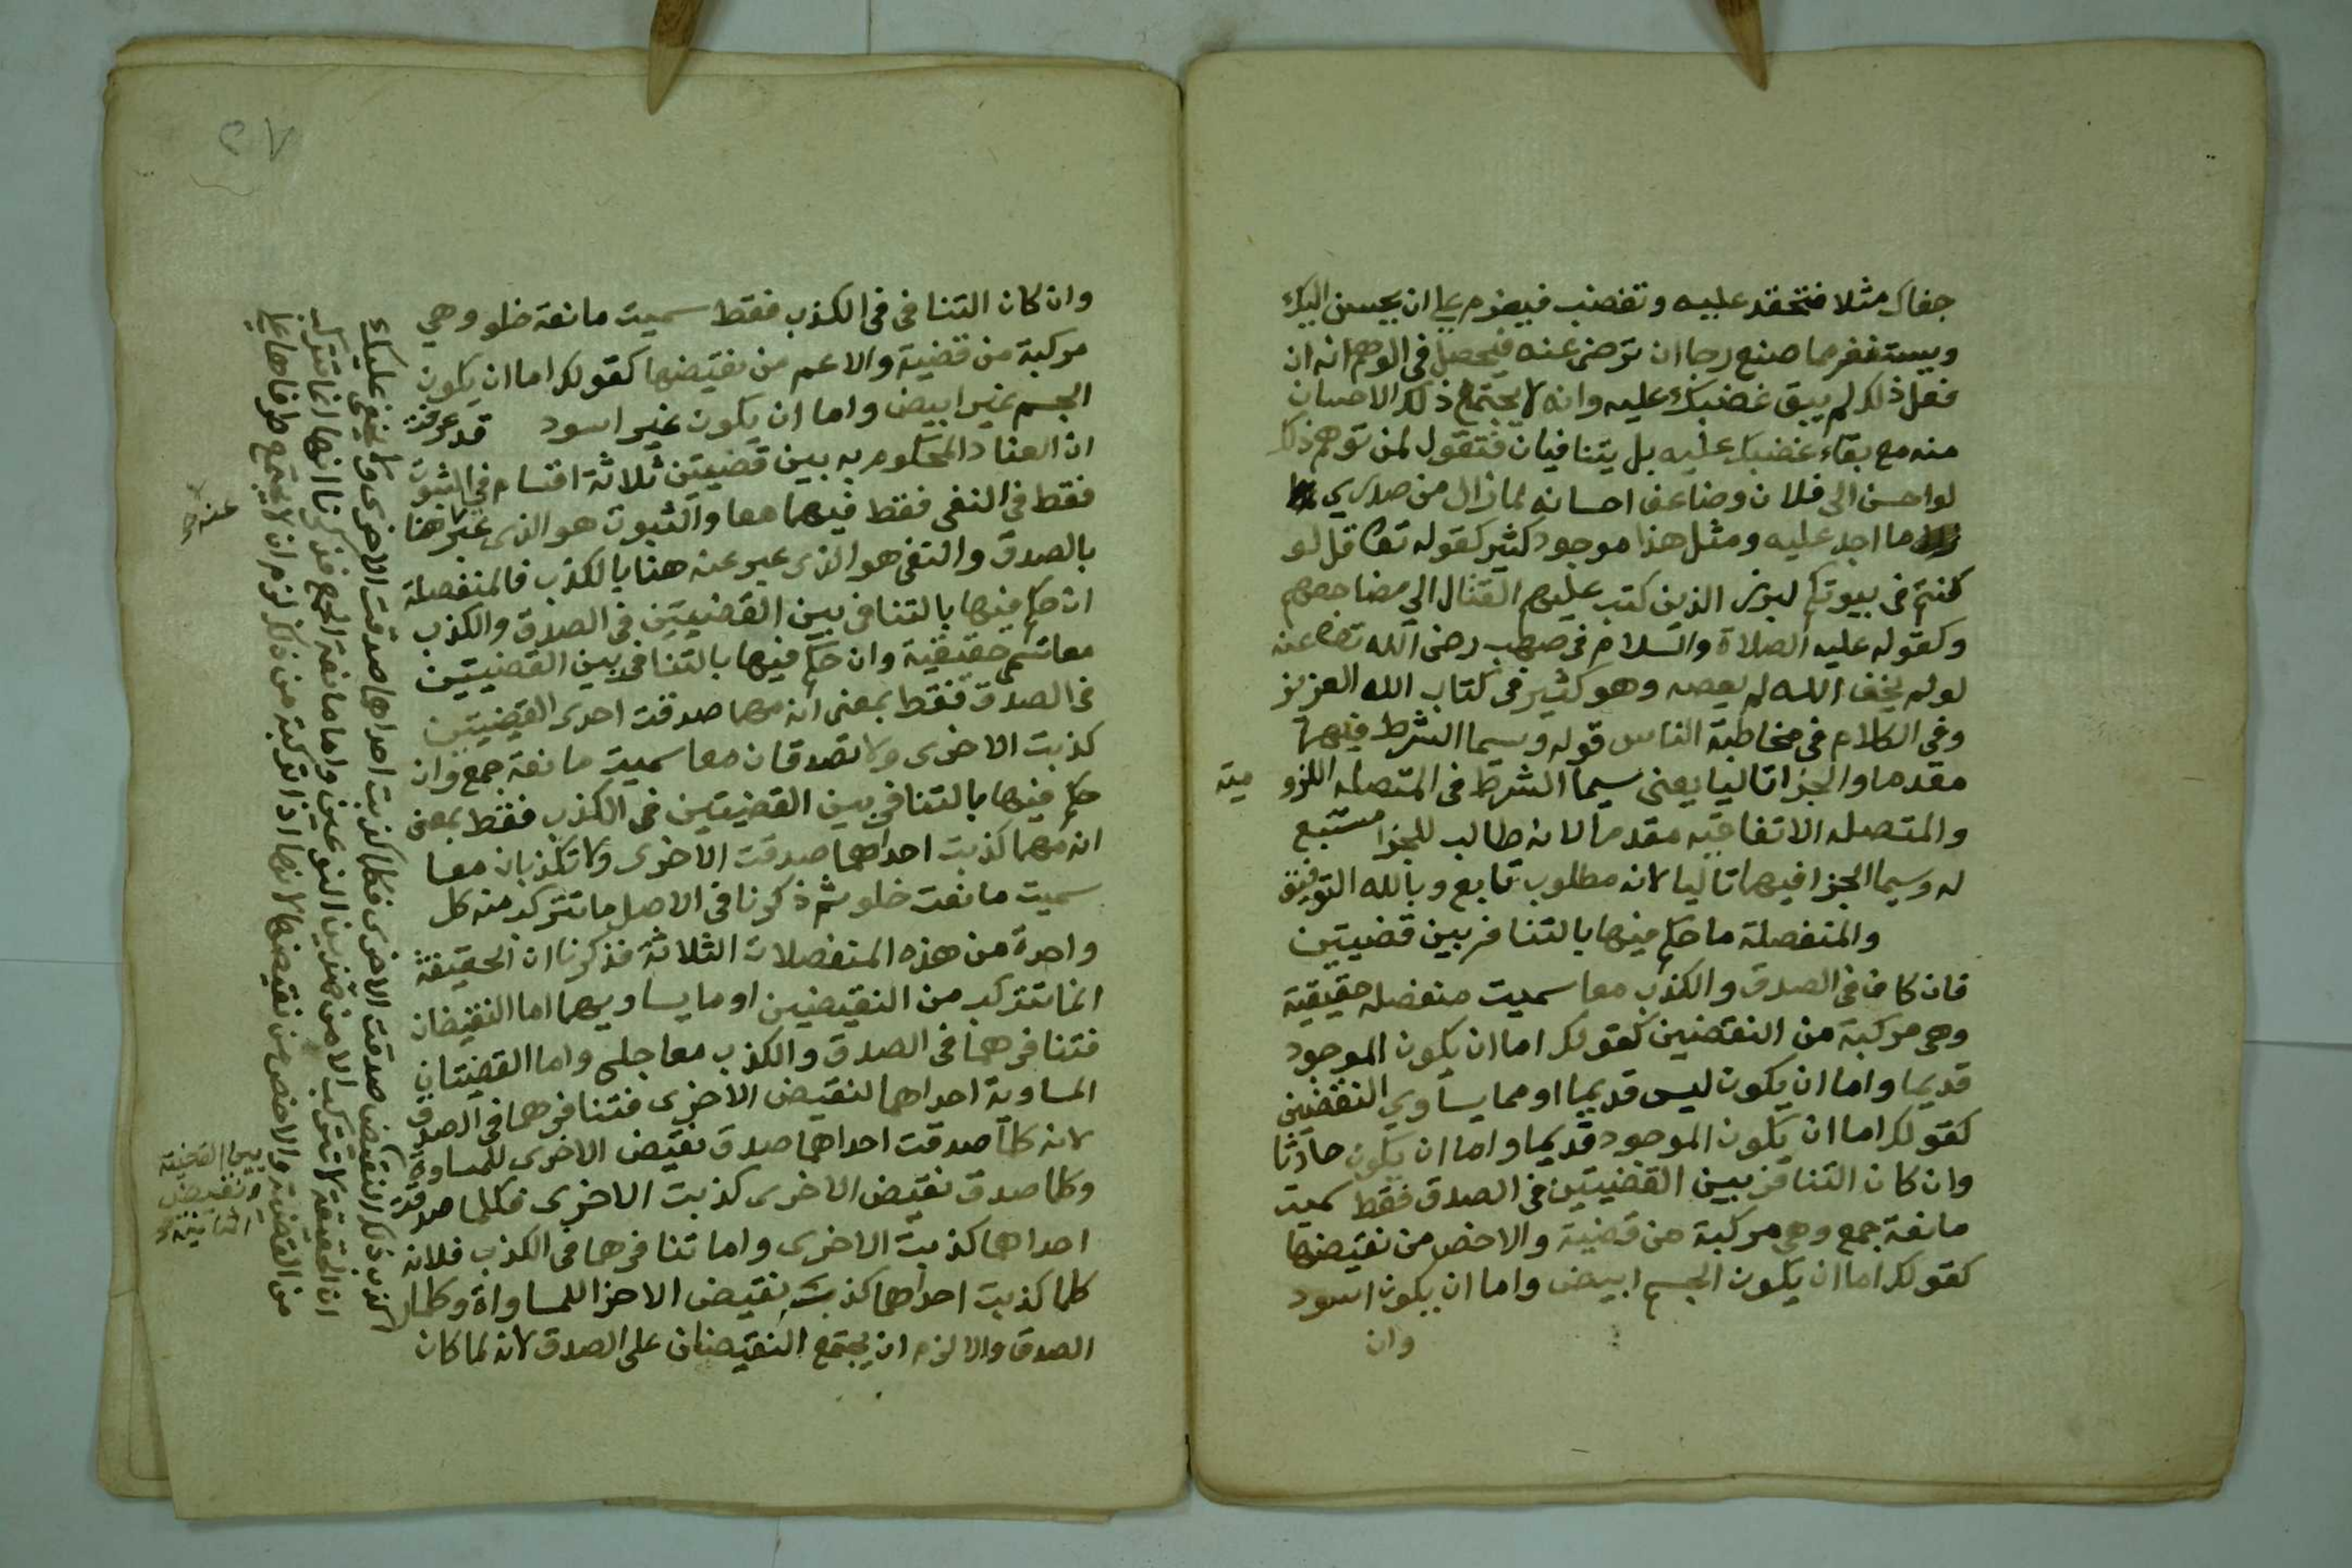 جفاك مثلا فتحقد عليه وتغضب فيعزم على ان يحسن اليك
ويستغفر مما صنع رجا ان ترضى عنه فيحصل في الوهم انه ان
فعل ذلك لم يبق غضبك عليه وانه لا يجتمع ذلك الاحسان
منه مع بقاء غضبك عليه بل يتنافيان فتقول لمن توهم ذلك
لو احسن الي فلان وضاعف احسانه لما زال من صدري
ما اجد عليه ومثل هذا موجود كثير كقوله تعا قل لو
كنتم في بيوتكم لبرز الذين كتب عليهم القتال الي مضاجعهم
وكقوله عليه الصلاة والسلام في صهيب رضى الله تعا عنه
لو لم يخف الله لم يعصه وهو كثير في كتاب الله العزيز
وفي الكلام في مخاطبة الناس قوله وسيما الشرط فيهما
مقدما والجزا تاليا يعنى سيما الشرط في المتصله اللزو مية
والمتصله الاتفاقيه مقدما لانه طالب للجزا مستتبع
له وسيما الجزا فيهما تاليا لانه مطلوب تابع وبالله التوفيق
والمنفصلة ما حكم فيها بالتنافر بين قضيتين
فان كان في الصدق والكذب معا سميت منفصله حقيقية
وهي مركبة من النقضين كقولك اما ان يكون الموجود
قديما واما ان يكون ليس قديما او مما يساوي النقضين
كقولك اما ان يكون الموجود قديما واما ان يكون حادثا
وان كان التنافر بين القضيتين في الصدق فقط سميت
مانعة جمع وهي مركبة من قضية والاخص من نقيضها
كقولك اما ان يكون الجسم ابيض واما ان يكون اسود
وان
٢٧
وان كان التنافى في الكذب فقط سميت مانعة خلو وهي
مركبة من قضية والاعم من نقيضها كقولك اما ان يكون
الجسم غير ابيض واما ان يكون غير اسود قد عرفت
ان العناد المحكوم به بين قضيتين ثلاثة اقسام في الثبوت
فقط في النفى فقط فيهما معا والثبوت هو الذى عبر هنا
عنه صح
بالصدق والنفى هو الذى عبر عنه هنا بالكذب فالمنفصلة
ان حكم فيها بالتنافى بين القضيتين في الصدق والكذب
معا تسم حقيقية وان حكم فيها بالتنافى بين القضيتين
في الصدق فقط بمعنى انه مهما صدقت احدى القضيتين
كذبت الاخرى ولا تصدقان معا سميت مانعة جمع وان
حكم فيها بالتنافى بين القضيتين في الكذب فقط بمعنى
انه مهما كذبت احداهما صدقت الاخرى ولا تكذبان معا
سميت مانعت خلو ثم ذكرنا في الاصل ما تتركب منه كل
واحدة من هذه المنفصلات الثلاثة فذكرنا ان الحقيقة
انما تتركب من النقيضين او ما يساويهما اما النقيضان
فتنافرهما في الصدق والكذب معا جلى واما القضيتان
المساوية احداهما لنقيض الاخرى فتنافرهما في الصدق
لانه كلما صدقت احداهما صدق نقيض الاخرى للمساواة
بين القضية
ونقيض
الثانية صح
وكلما صدق نقيض الاخرى كذبت الاخرى فكلما صدقت
احداهما كذبت الاخرى واما تنافرهما في الكذب فلانه
كلما كذبت احداهما كذبت نقيض الاخرا للمساواة وكلما
كذب ذلك النقيض صدقت الاخرى فكلما كذبت احداهما صدقت الاخرى ولا يخفى عليك
ان الحقيقة لا تتركب الا من هذين النوعين واما مانعة الجمع فذكرنا انها انما تتركب
من القضية والاخص من نقيضها لانها اذا تركبت من ذلك لزم ان لا يجتمع طرفاها على
الصدق والا لزم ان يجتمع النقيضان على الصدق لانه لما كان